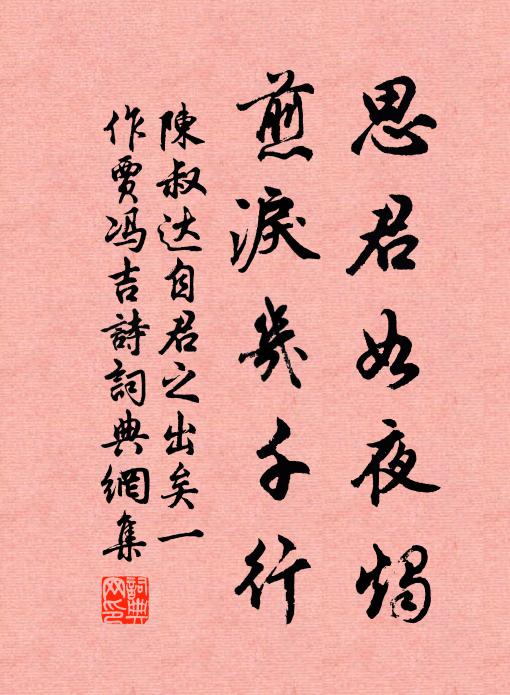 思君如夜燭
煎淚幾千行
陳叔达自君之出矣一
作賈冯吉詩詞典網集
詞典网印